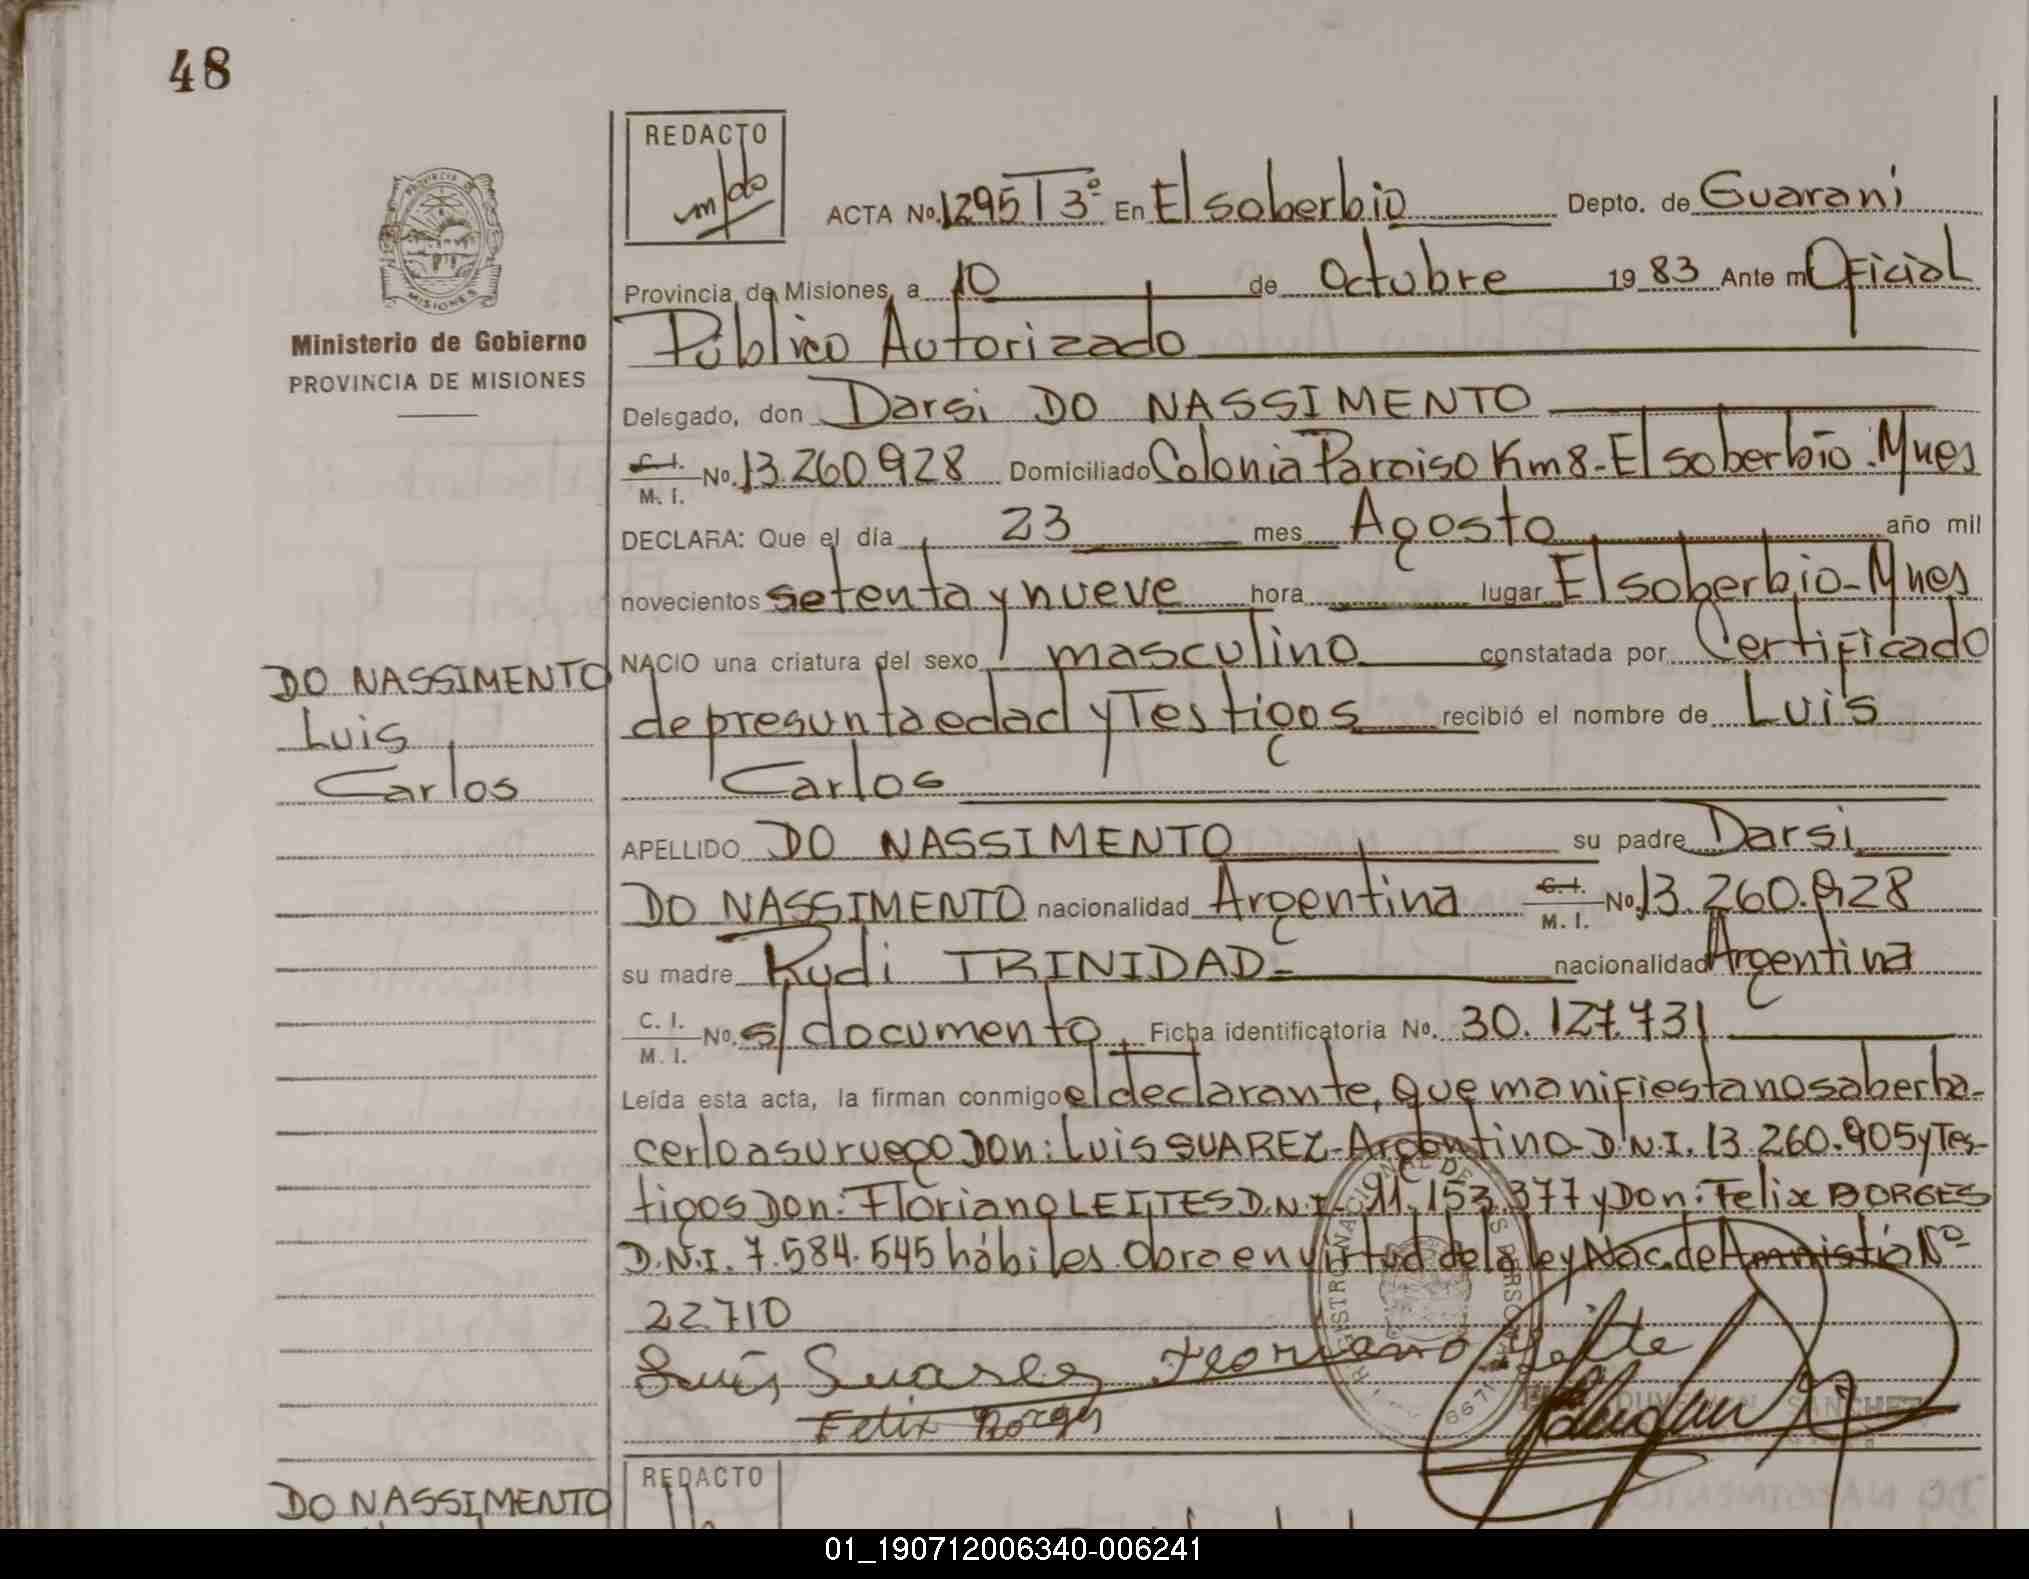 48
REDACTO
PROVINCIA DE
MISIONES
Ministerio de Gobierno
PROVINCIA DE MISIONES
ACTA No. 1295 T 3º En El soberbio Depto. de Guarani
Provincia de Misiones, a 10 de Octubre 1983 Ante mi Oficial
Público Autorizado
Delegado, don Darsi DO NASSIMENTO
C.I. M. I. No. 13.260.928 Domiciliado Colonia Paraiso Km 8-El soberbio. Mnes
DECLARA: Que el día 23 mes Agosto año mil
novecientos setenta y nueve hora lugar El soberbio-Mnes
NACIO una criatura del sexo masculino constatada por Certificado
de presunta edad y Testigos recibió el nombre de Luis
Carlos
DO NASSIMENTO
Luis
Carlos
APELLIDO DO NASSIMENTO su padre Darsi
DO NASSIMENTO nacionalidad Argentina C.I. M. I. No. 13.260.928
su madre Rudi TRINIDAD= nacionalidad Argentina
C. I. M. I. No. s/documento Ficha identificatoria No. 30.127.731
Leída esta acta, la firman conmigo el declarante, que manifiesta no saber ha-
cerlo a su ruego Don: Luis SUAREZ-Argentino-D.N.I. 13.260.905 y Tes-
tigos Don: Floriano LEITES D.N.I. 11.153.377 y Don: Felix BORGES
D.N.I. 7.584.545 hábiles. Obra en virtud de la ley Nac. de Amnistía Nº
22710
Luis Suares Floriano Leite
Felix Borges
SANCHEZ
DO NASSIMENTO
REDACTO
01_190712006340-006241